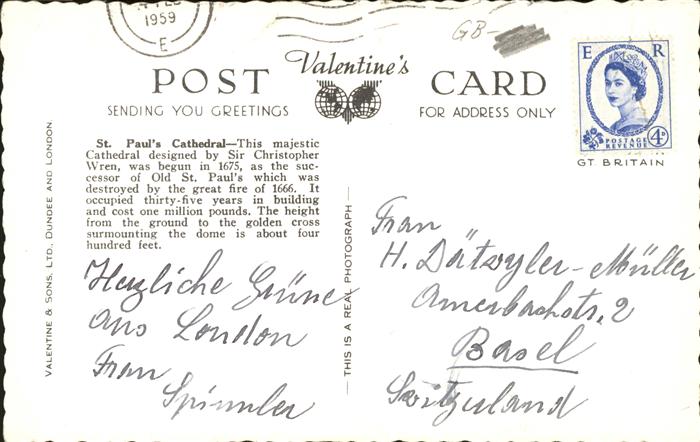 FEB
1959
E
GB-
POST Valentine's CARD
SENDING YOU GREETINGS
FOR ADDRESS ONLY
E R
POSTAGE
REVENUE
4D
GT. BRITAIN
VALENTINE & SONS, LTD., DUNDEE AND LONDON.
St. Paul's Cathedral—This majestic
Cathedral designed by Sir Christopher
Wren, was begun in 1675, as the suc-
cessor of Old St. Paul's which was
destroyed by the great fire of 1666. It
occupied thirty-five years in building
and cost one million pounds. The height
from the ground to the golden cross
surmounting the dome is about four
hundred feet.
Herzliche Grüsse
aus London
Frau
Spinnler
— THIS IS A REAL PHOTOGRAPH —
Frau
H. Dätwyler-Müller
Amerbachstr. 2
Basel
Switzerland